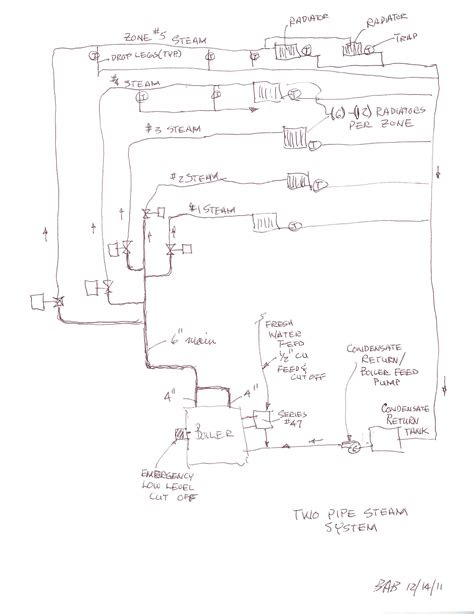 ZONE #5 STEAM
RADIATOR
RADIATOR
TRAP
T
DROP LEGS (TYP)
T
T
T
T
#4 STEAM
T
T
T
(6)-(12) RADIATORS
PER ZONE
#3 STEAM
T
#2 STEAM
T
#1 STEAM
T
6" main
FRESH
WATER
FEED
1/2" CU
FEED &
CUT OFF
CONDENSATE
RETURN/
BOILER FEED
PUMP
4"
4"
CONDENSATE
RETURN
TANK
SERIES
#47
BOILER
EMERGENCY
LOW LEVEL
CUT OFF
TWO PIPE STEAM
SYSTEM
BAB 12/14/11